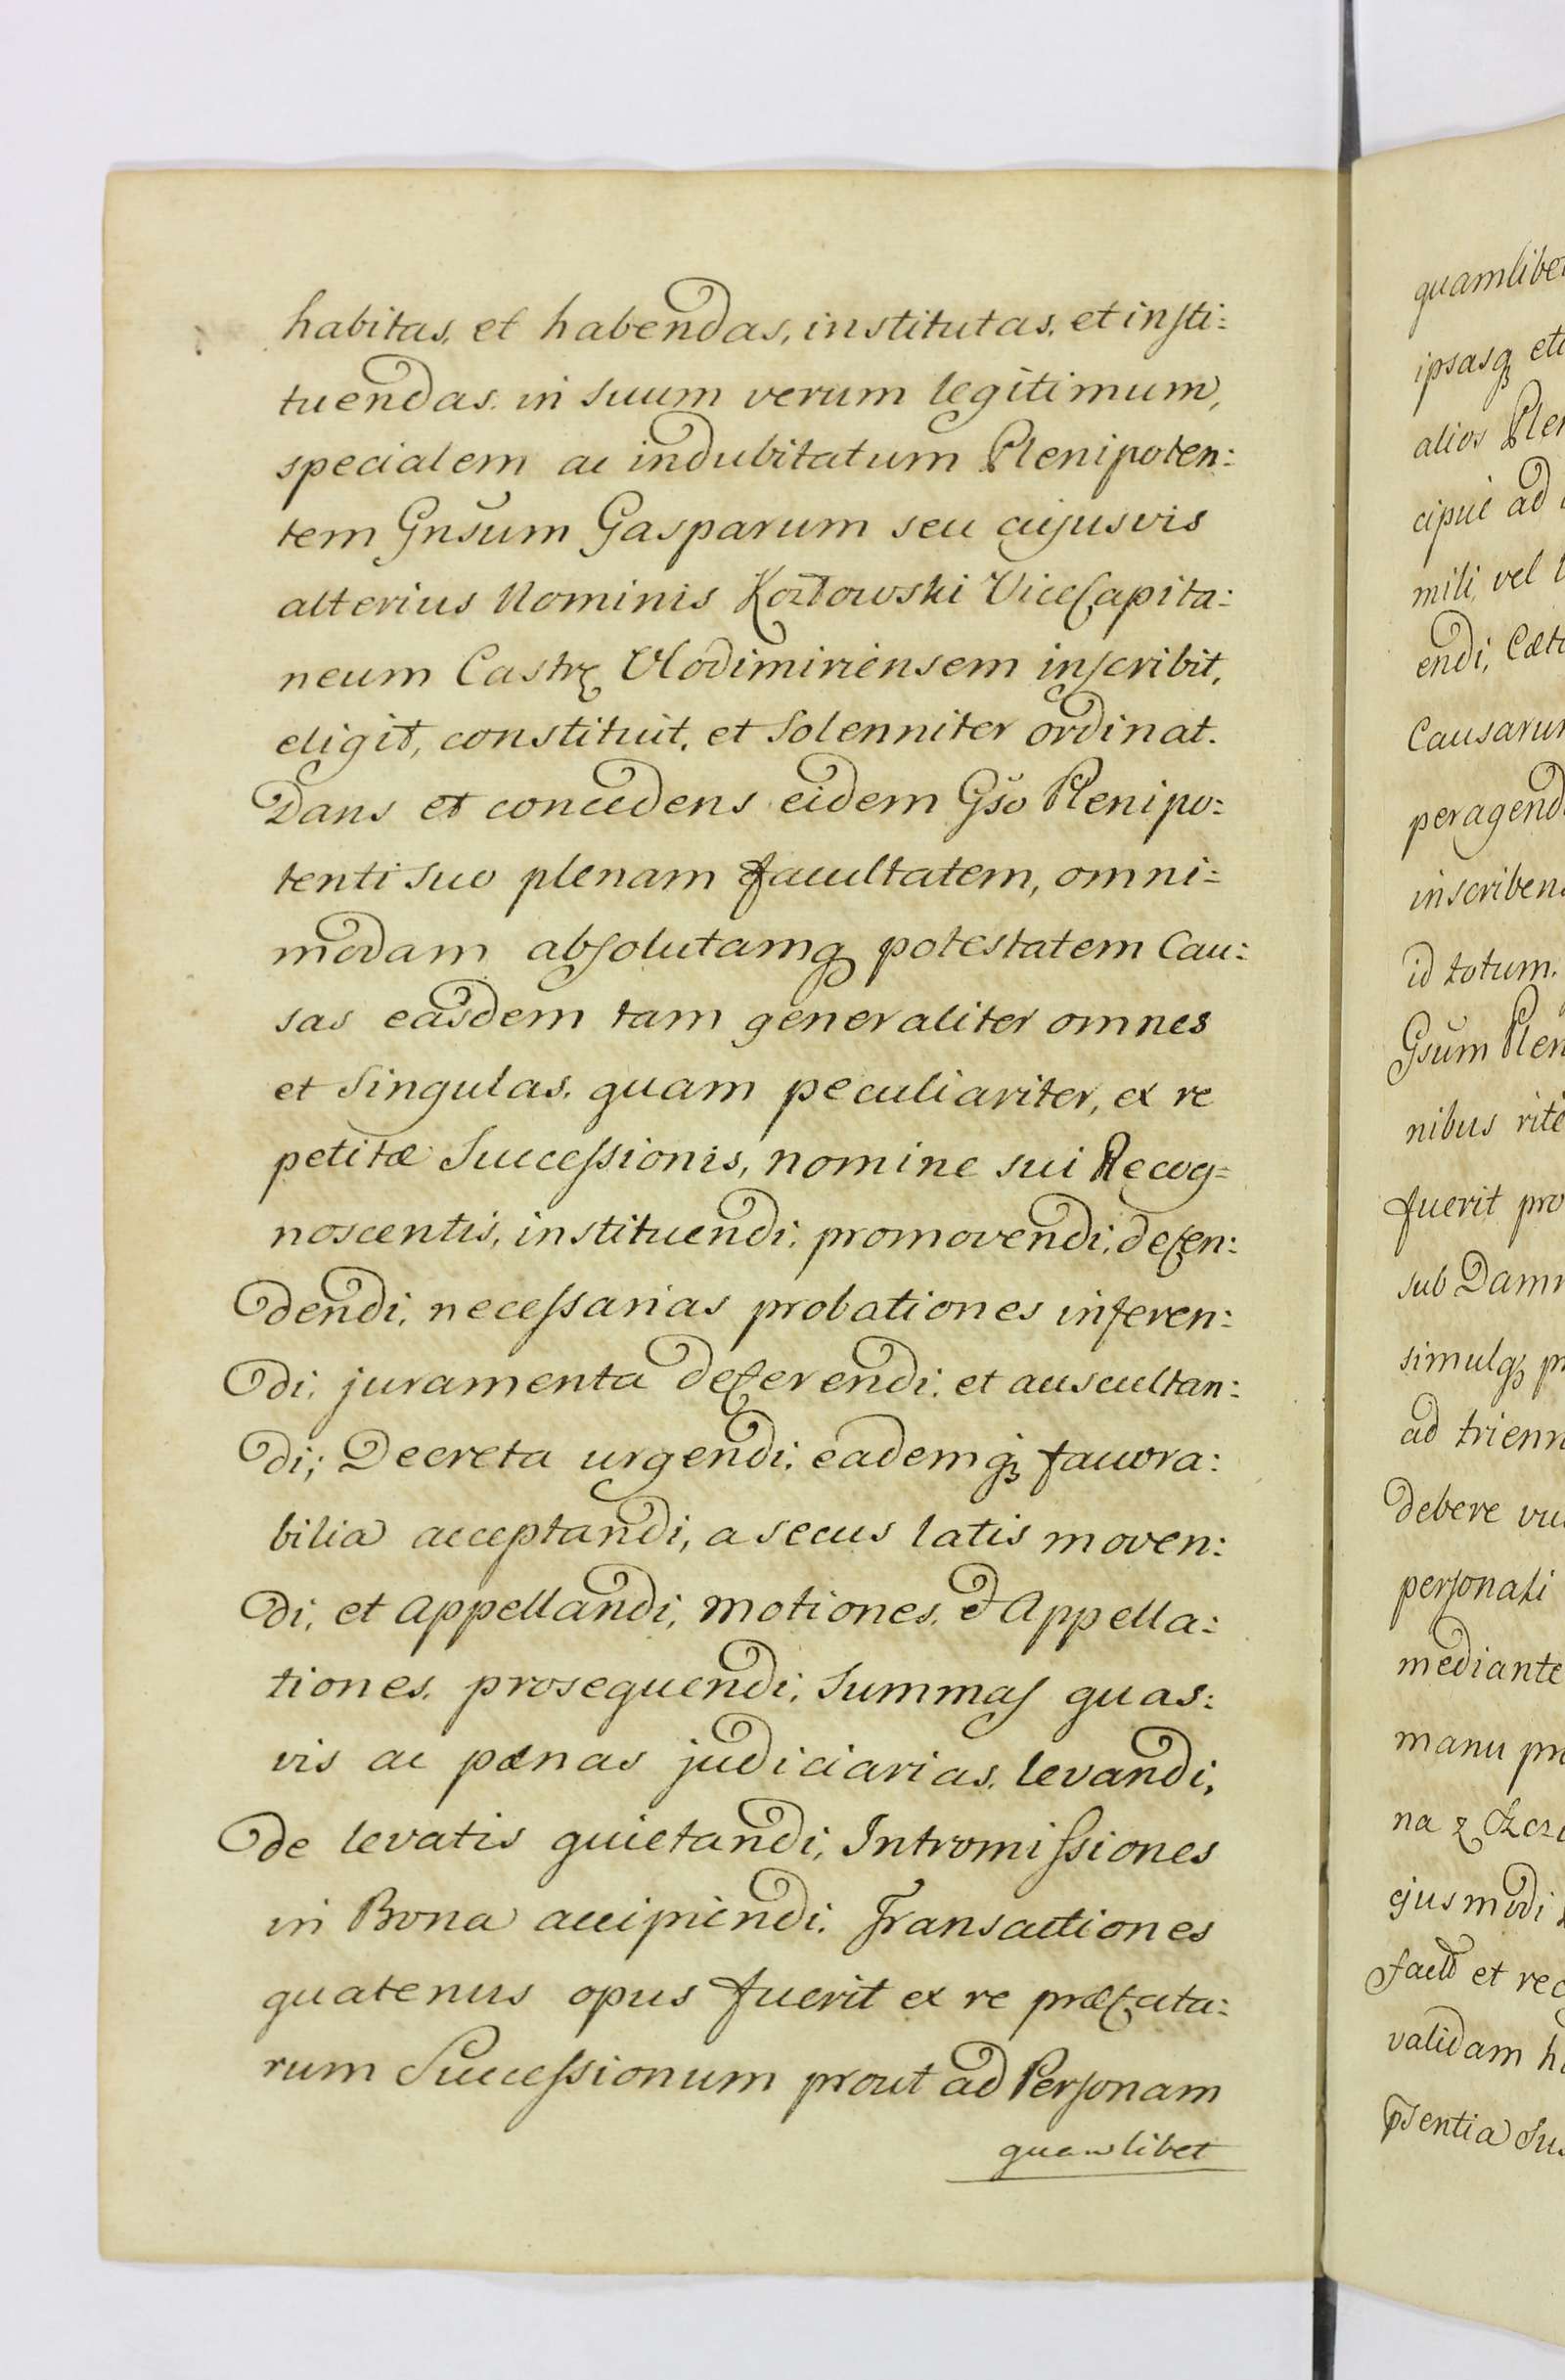 habitas, et habendas, institutas, et insti:
tuendas. in suum verum legitimum,
specialem ac indubitatum Plenipoten:
tem Gnsum Gasparum seu cujusvis
alterius Nominis Kozłowski ViceCapita:
neum Castr Vlodimiriensem inscribit,
eligit, constituit, et Solenniter ordinat.
Dans et concedens eidem Gso Plenipo:
tenti suo plenam facultatem, omni=
modam absolutamq potestatem Cau:
sas easdem tam generaliter omnes
et Singulas. quam peculiariter, ex re
petitæ Successionis, nomine sui Recog=
noscentis, instituendi, promovendi, defen:
dendi, necessarias probationes inferen:
di, juramenta deferendi, et auscultan:
di; Decreta urgendi, eademq favora:
bilia acceptandi, a secus latis moven:
di, et Appellandi, motiones, et Appella:
tiones. prosequendi, Summas quas:
vis ac pænas judiciarias. levandi,
de levatis quietandi, Intromissiones
in Bona accipiendi. Transactiones
quatenus opus fuerit ex re præfata:
rum Successionum prout ad Personam
quamlibet
quamlibe
ipsasq
alios
cipue ad
mili, vel
endi,
Causaru
peragend
inscriben
id totum.
Gsum Plen
nibus rite
fuerit pro
sub Damn
simulq
ad trienn
debere
personali
mediante
manu
na
ejusmodi
facto et
validam